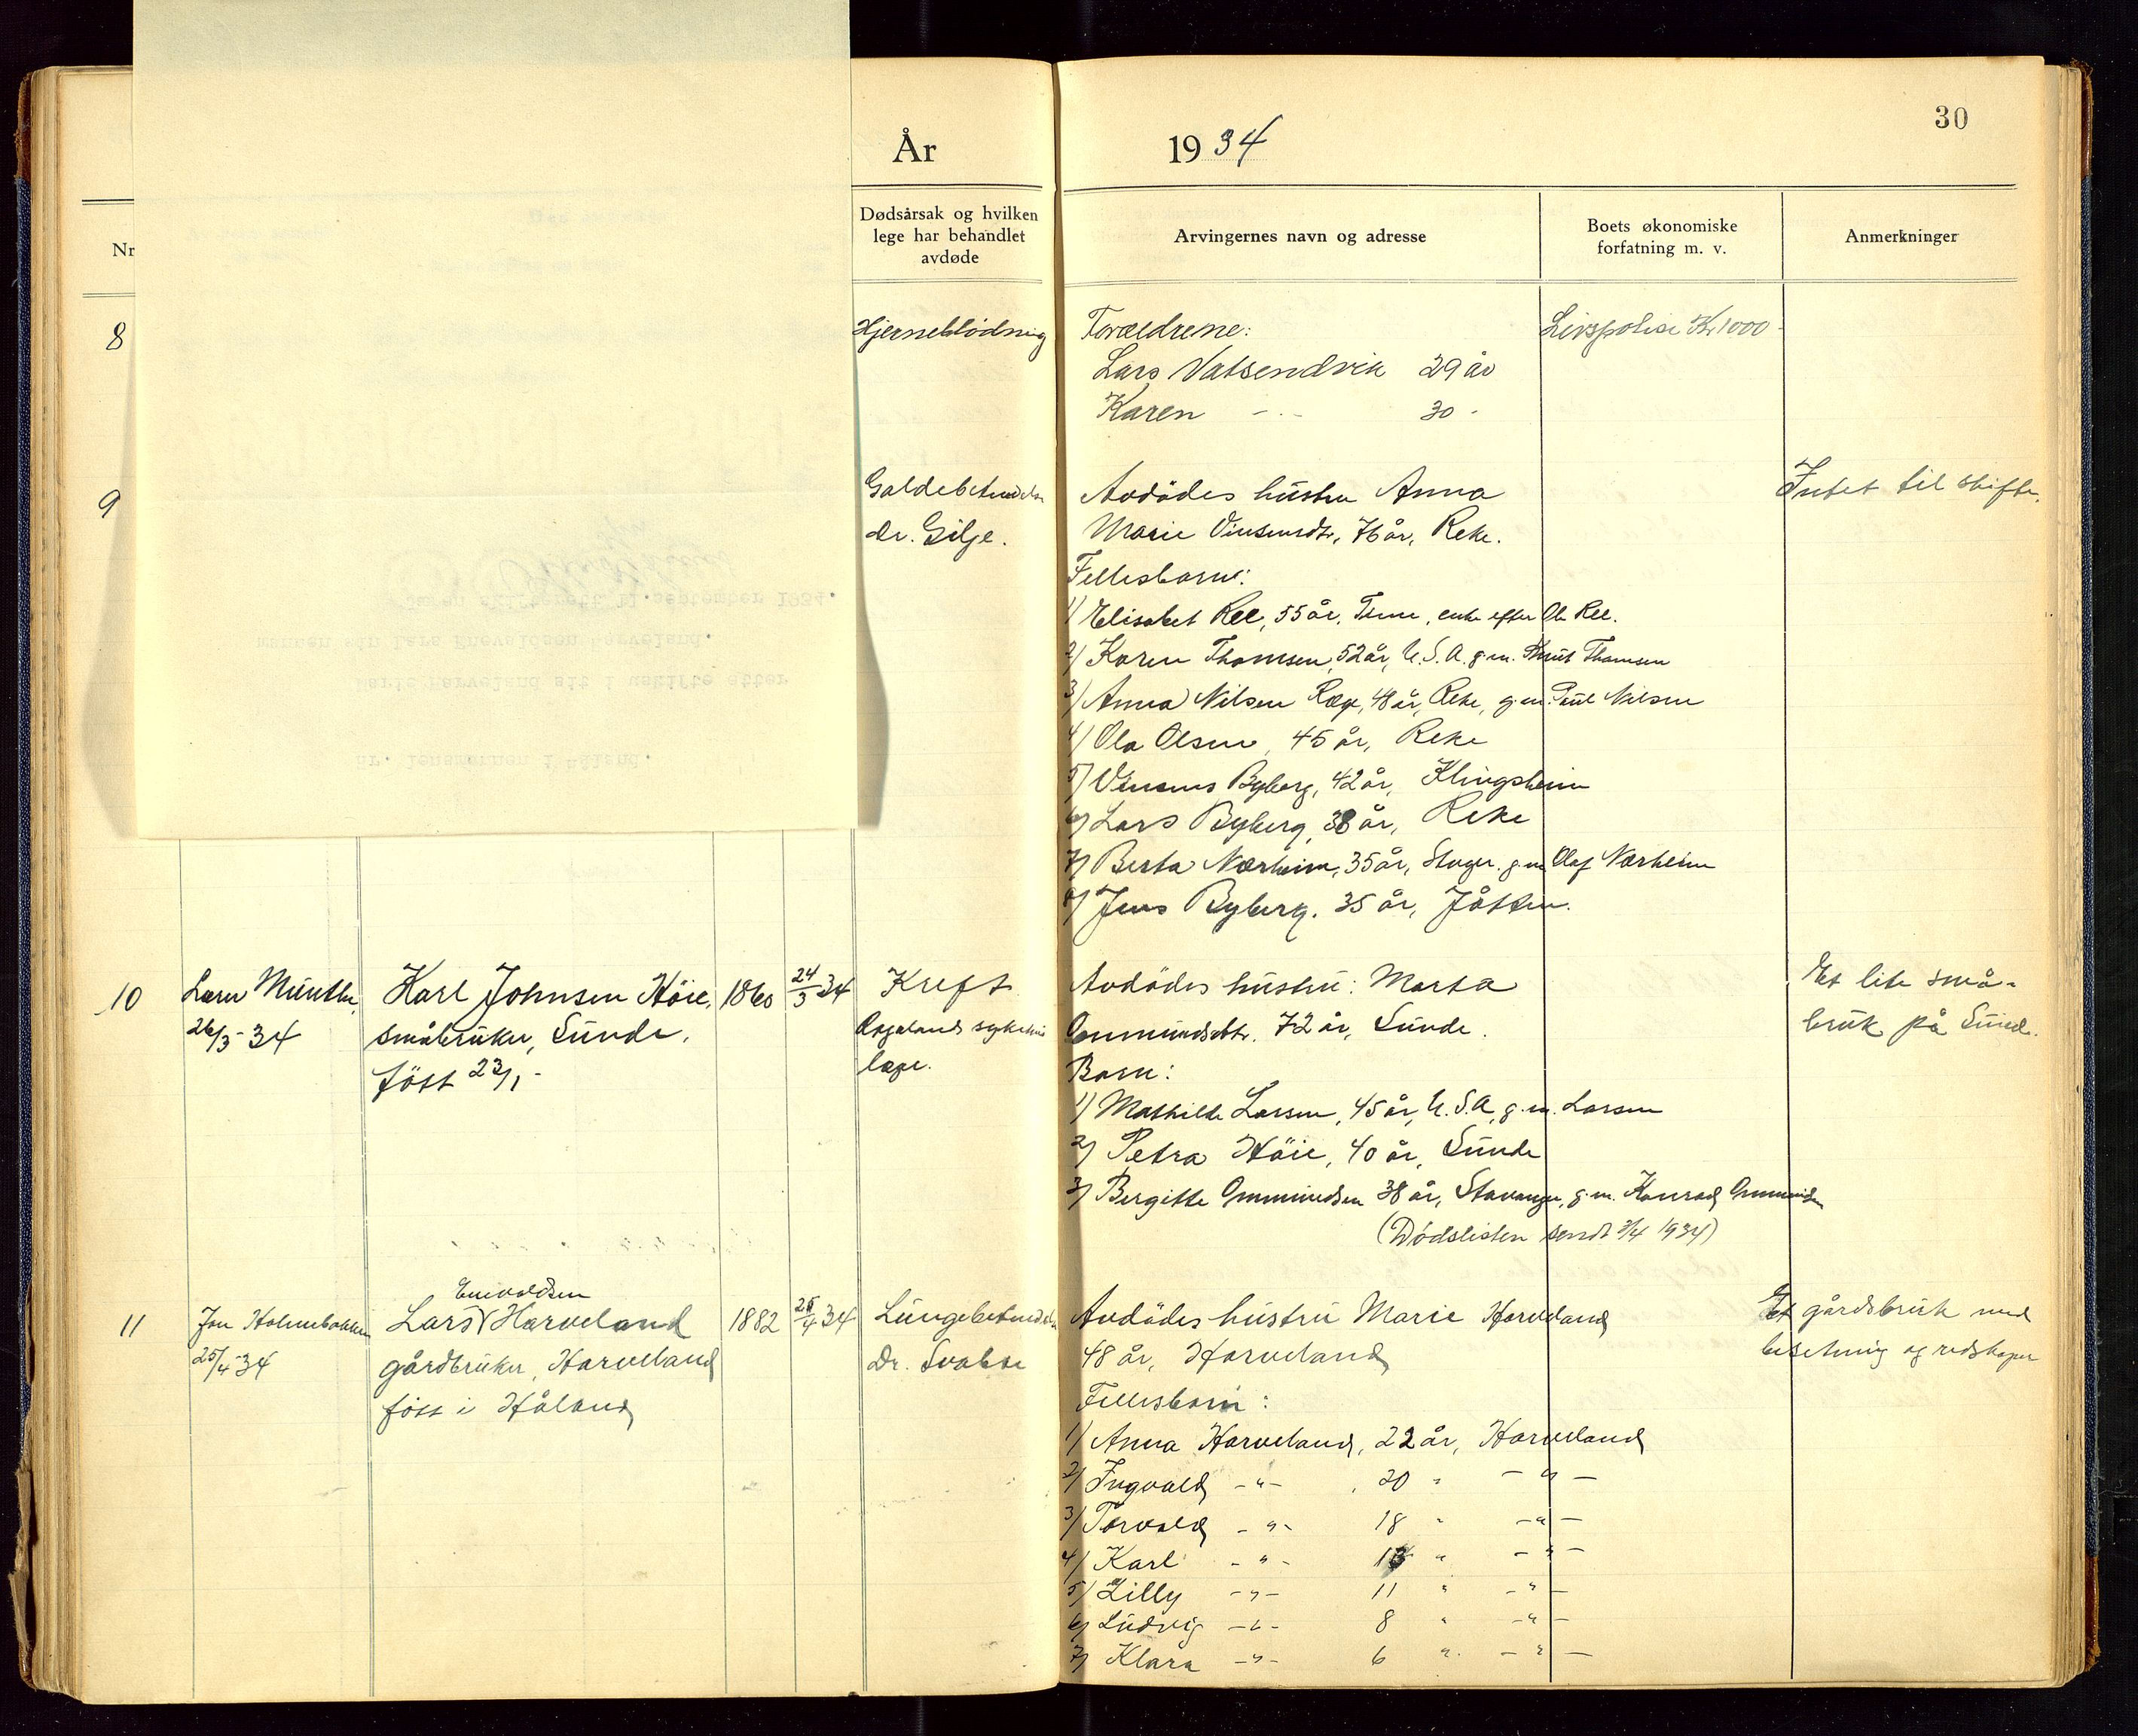 30
År 1934
Nr
Dødsårsak og hvilken
lege har behandlet
avdøde
Arvingernes navn og adresse
Boets økonomiske
forfatning m. v.
Anmerkninger
8
Hjerneblödning
Foreldrene:
Lars Vatsendvik 29 år
Karen - - 30 -
Livspolise Kr 1000-
9
Galdebetendelse
dr. Gilje.
Avdödes hustru Anna
Marie Vinsensdtr, 76 år, Reke.
Fellesbarn:
1) Elisabet Ree, 55 år, Time, enke efter Ole Ree.
2) Karen Thomsen, 52 år, U.S.A. g.m. Knut Thomsen
3) Anna Nilsen Rege, 48 år, Reke, g.m. Paul Nilsen
4) Ola Olsen, 45 år, Reke
5) Vinsens Byberg, 42 år, Klingsheim
6) Lars Byberg, 38 år, Reke
7) Berta Nærheim, 35 år, Stvgr. g.m. Olaf Nærheim
8) Jens Byberg. 35 år, Jåtten.
Intet til skifte.
10
26/3-34
Karl Johnsen Höie,
småbruker, Sunde.
föst 23/1-
1860
24/3 34
Kreft
Rogalands sykehus
læge.
Avdödes hustru: Marta
Ommundsdtr. 72 år, Sunde.
Barn:
1) Mathilde Larsen, 45 år, U.S.A, g.m. Larsen
2) Petra Höie, 40 år, Sunde
3) Bergitte Ommundsen 38 år, Stavanger, g.m. Konrad Ommundsen
(Dödslisten sendt 3/4 1934)
Et lite små-
bruk på Sunde.
11
Jon Holmebakken
25/4-34
Enevoldsen
Lars V Harveland
gårdbruker, Harveland
föst i Håland
1882
25/4 34
Lungebetendelse
Dr. Svabse
Avdödes hustru Marie Harveland
48 år, Harveland
Fellesbarn:
1) Anna Harveland, 22 år, Harveland
2) Ingvald -"- , 20 " - " -
3) Torvald -"- 18 " - " -
4) Karl -"- " - " -
5) Lilly -"- 11 " - " -
6) Ludvig -"- 8 " - " -
7) Klara -"- 6 " - " -
Et gårdsbruk med
besetning og redskaper
Hr. lensmannen i Håland.
Marie Harveland sit i uskifte etter
mannen sin Lars Enevoldsen Harveland.
Jæren skifterett 11. september 1934.